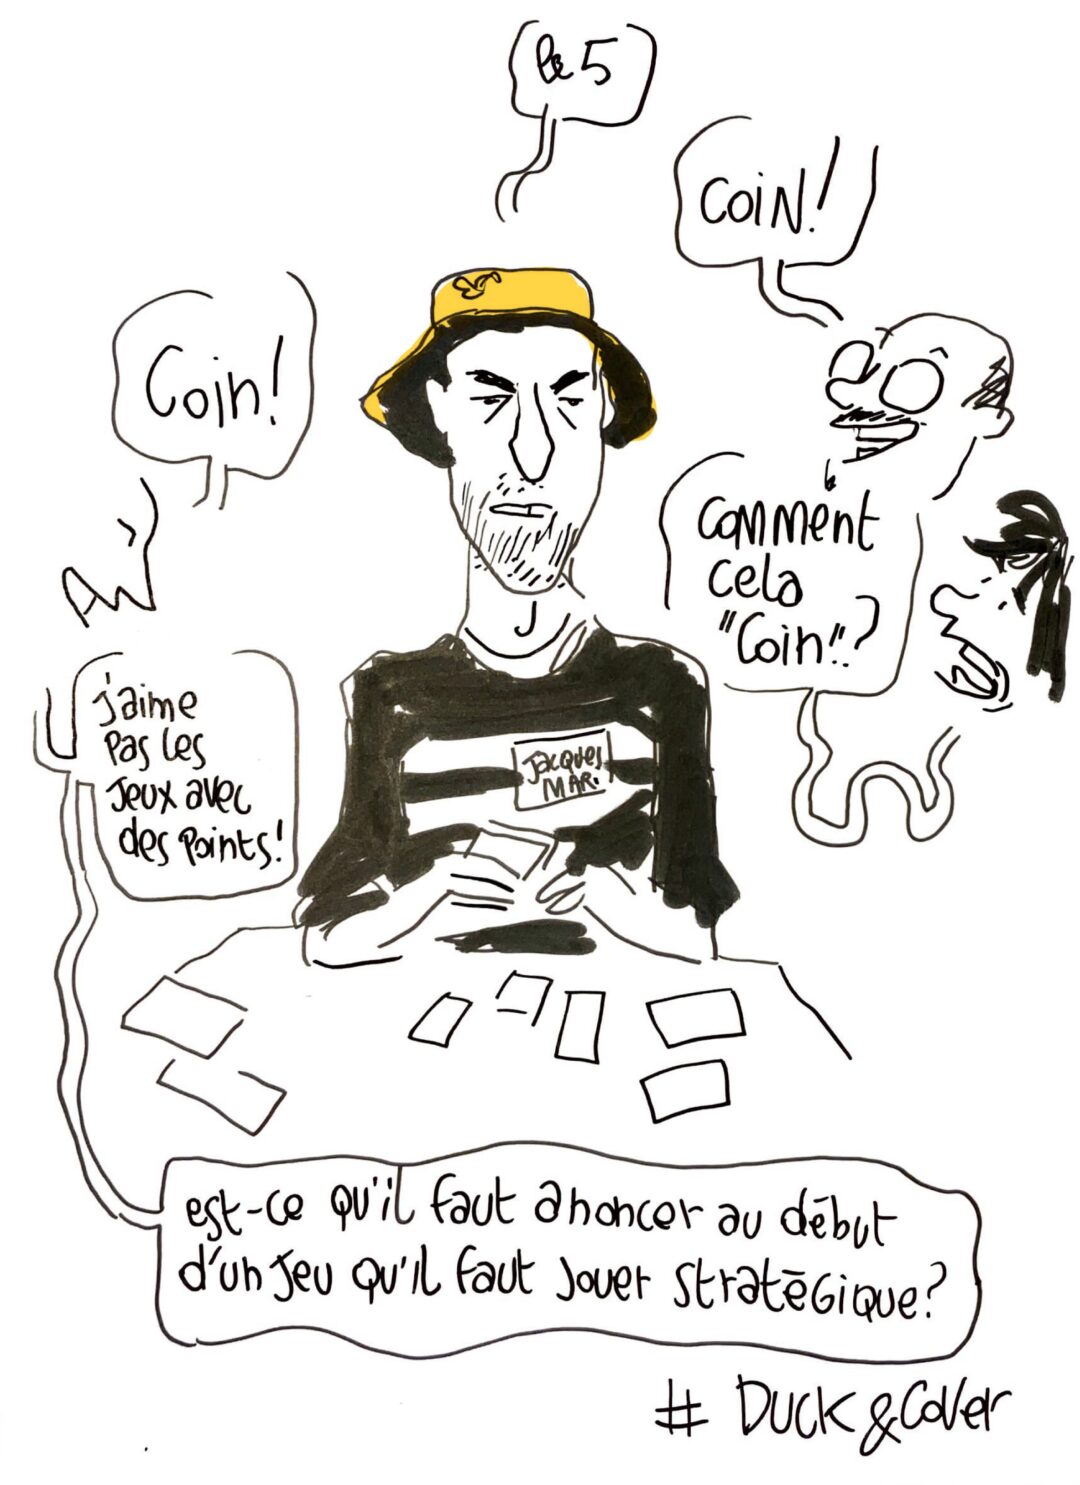 le 5
COIN!
Coin!
Comment
cela
"Coin"?
j'aime
pas les
jeux avec
des points!
Jacques
MAR.
est-ce qu'il faut anoncer au début
d'un jeu qu'il faut jouer stratégique?
# Duck & Cover